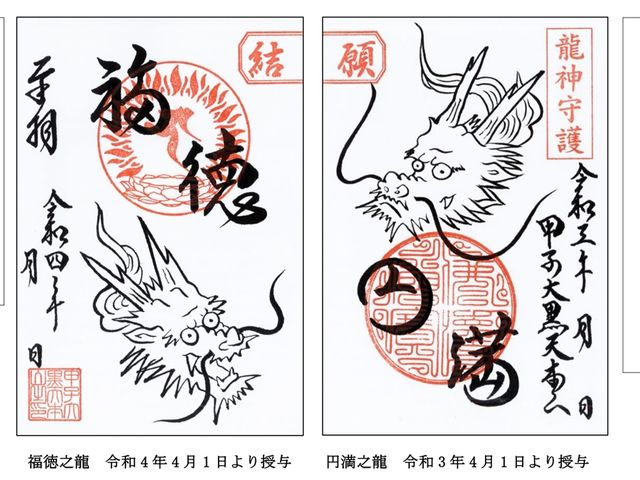 結願
福徳
奉拝
令和四年
月
日
龍神守護
円満
令和三年
月
日
甲子大黒天本山
福徳之龍　令和４年４月１日より授与
円満之龍　令和３年４月１日より授与